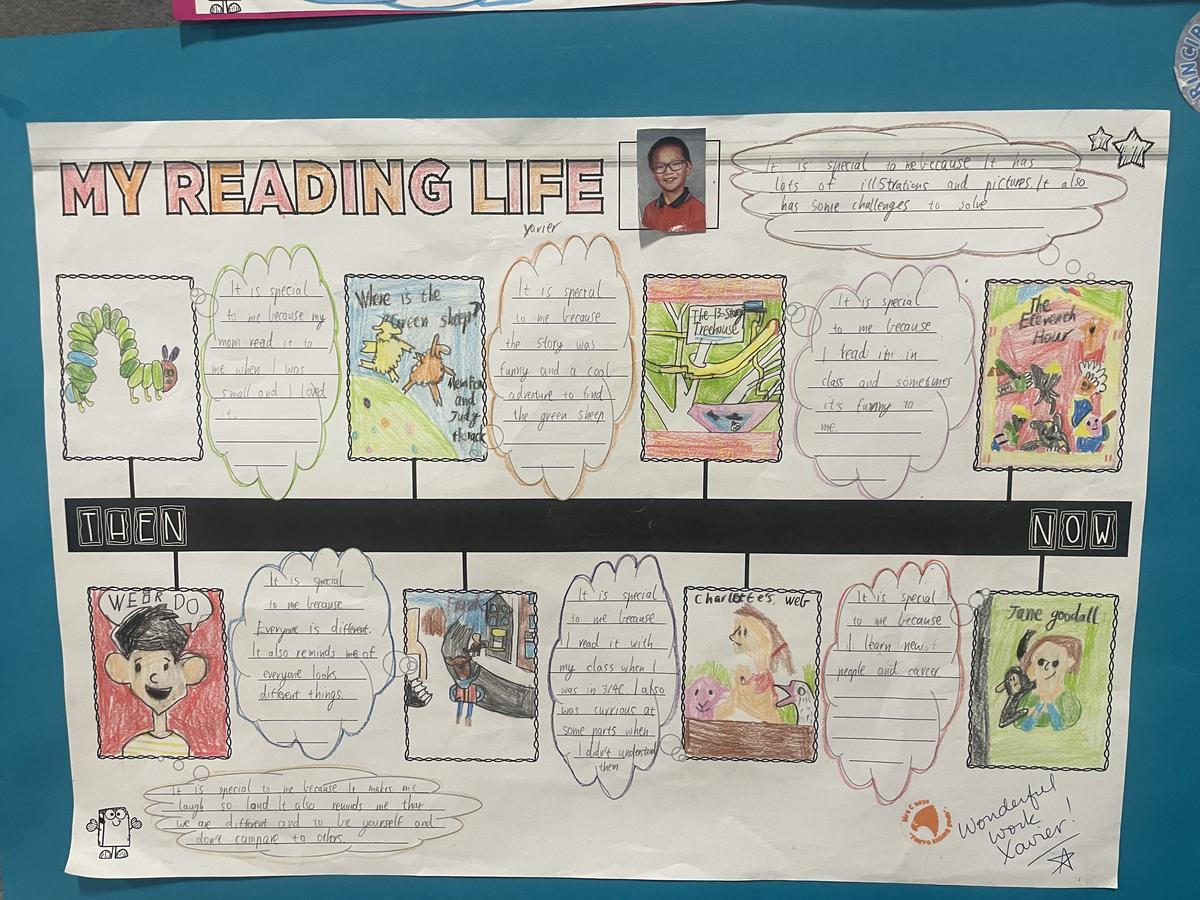 MY READING LIFE
Xavier
It is special to me because It has
lots of illstrations and pictures. It also
has some challenges to solve
It is special
to me because my
mom read it to
me when I was
small and I loved
it.
Where is the
Green sheep?
Mem Fox
and
Judy
Horack
It is special
to me because
the story was
funny and a cool
adventure to find
the green sheep
The 13-Story
Treehouse
It is special
to me because
I read it in
class and sometimes
it's funny to
me.
The
Eleventh
Hour
THEN
NOW
WEIR DO
It is special
to me because
Everyone is different.
It also reminds me of
everyone looks
different things.
It is special
to me because
I read it with
my class when I
was in 3/4C. I also
was currious at
some parts when
I didn't understand
them
Charlotte's web
It is special
to me because
I learn new
people and career
Jane goodall
It is special to me because It makes me
laugh so loud It also reminds me that
we are different and to be yourself and
don't campare to others.
Mrs C says
Wonderful
work
Xavier!
RINCIP